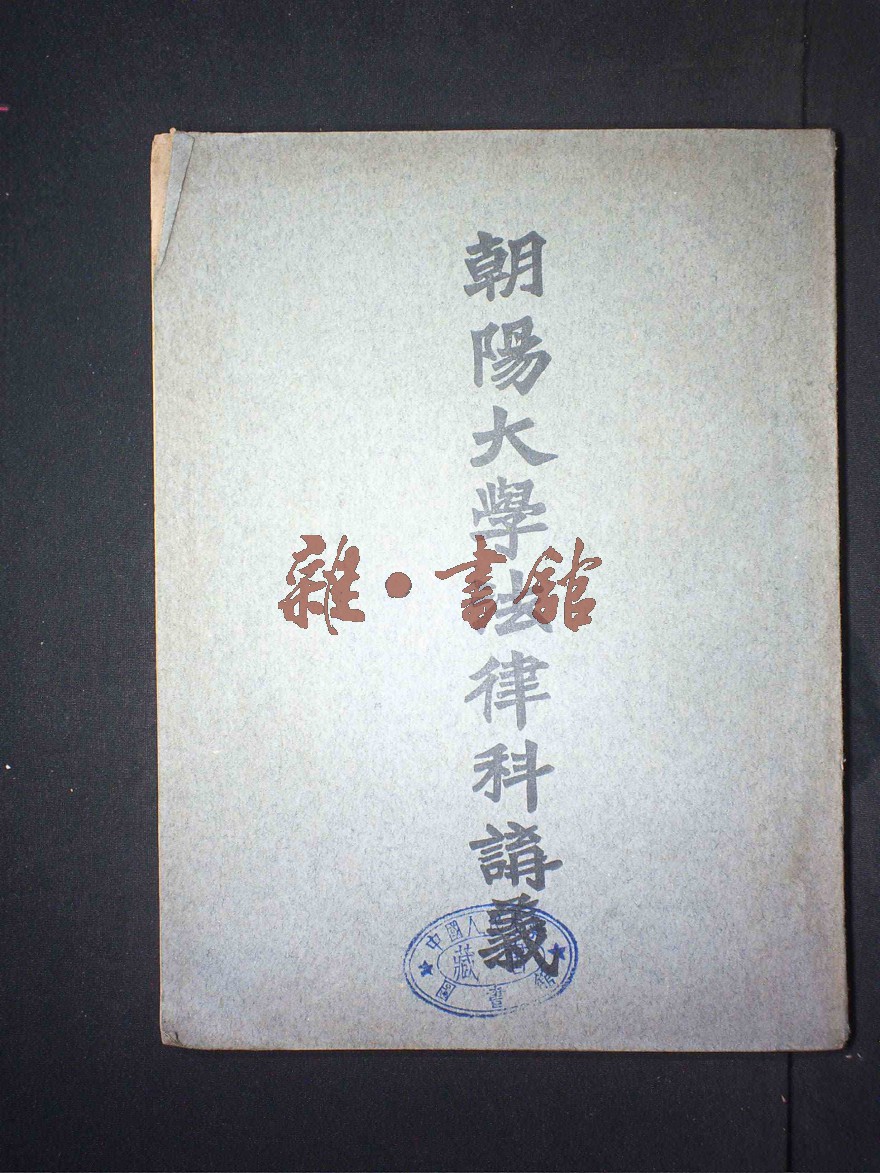 朝陽大學法律科講義
雜·書館
中國人
藏
圖書館